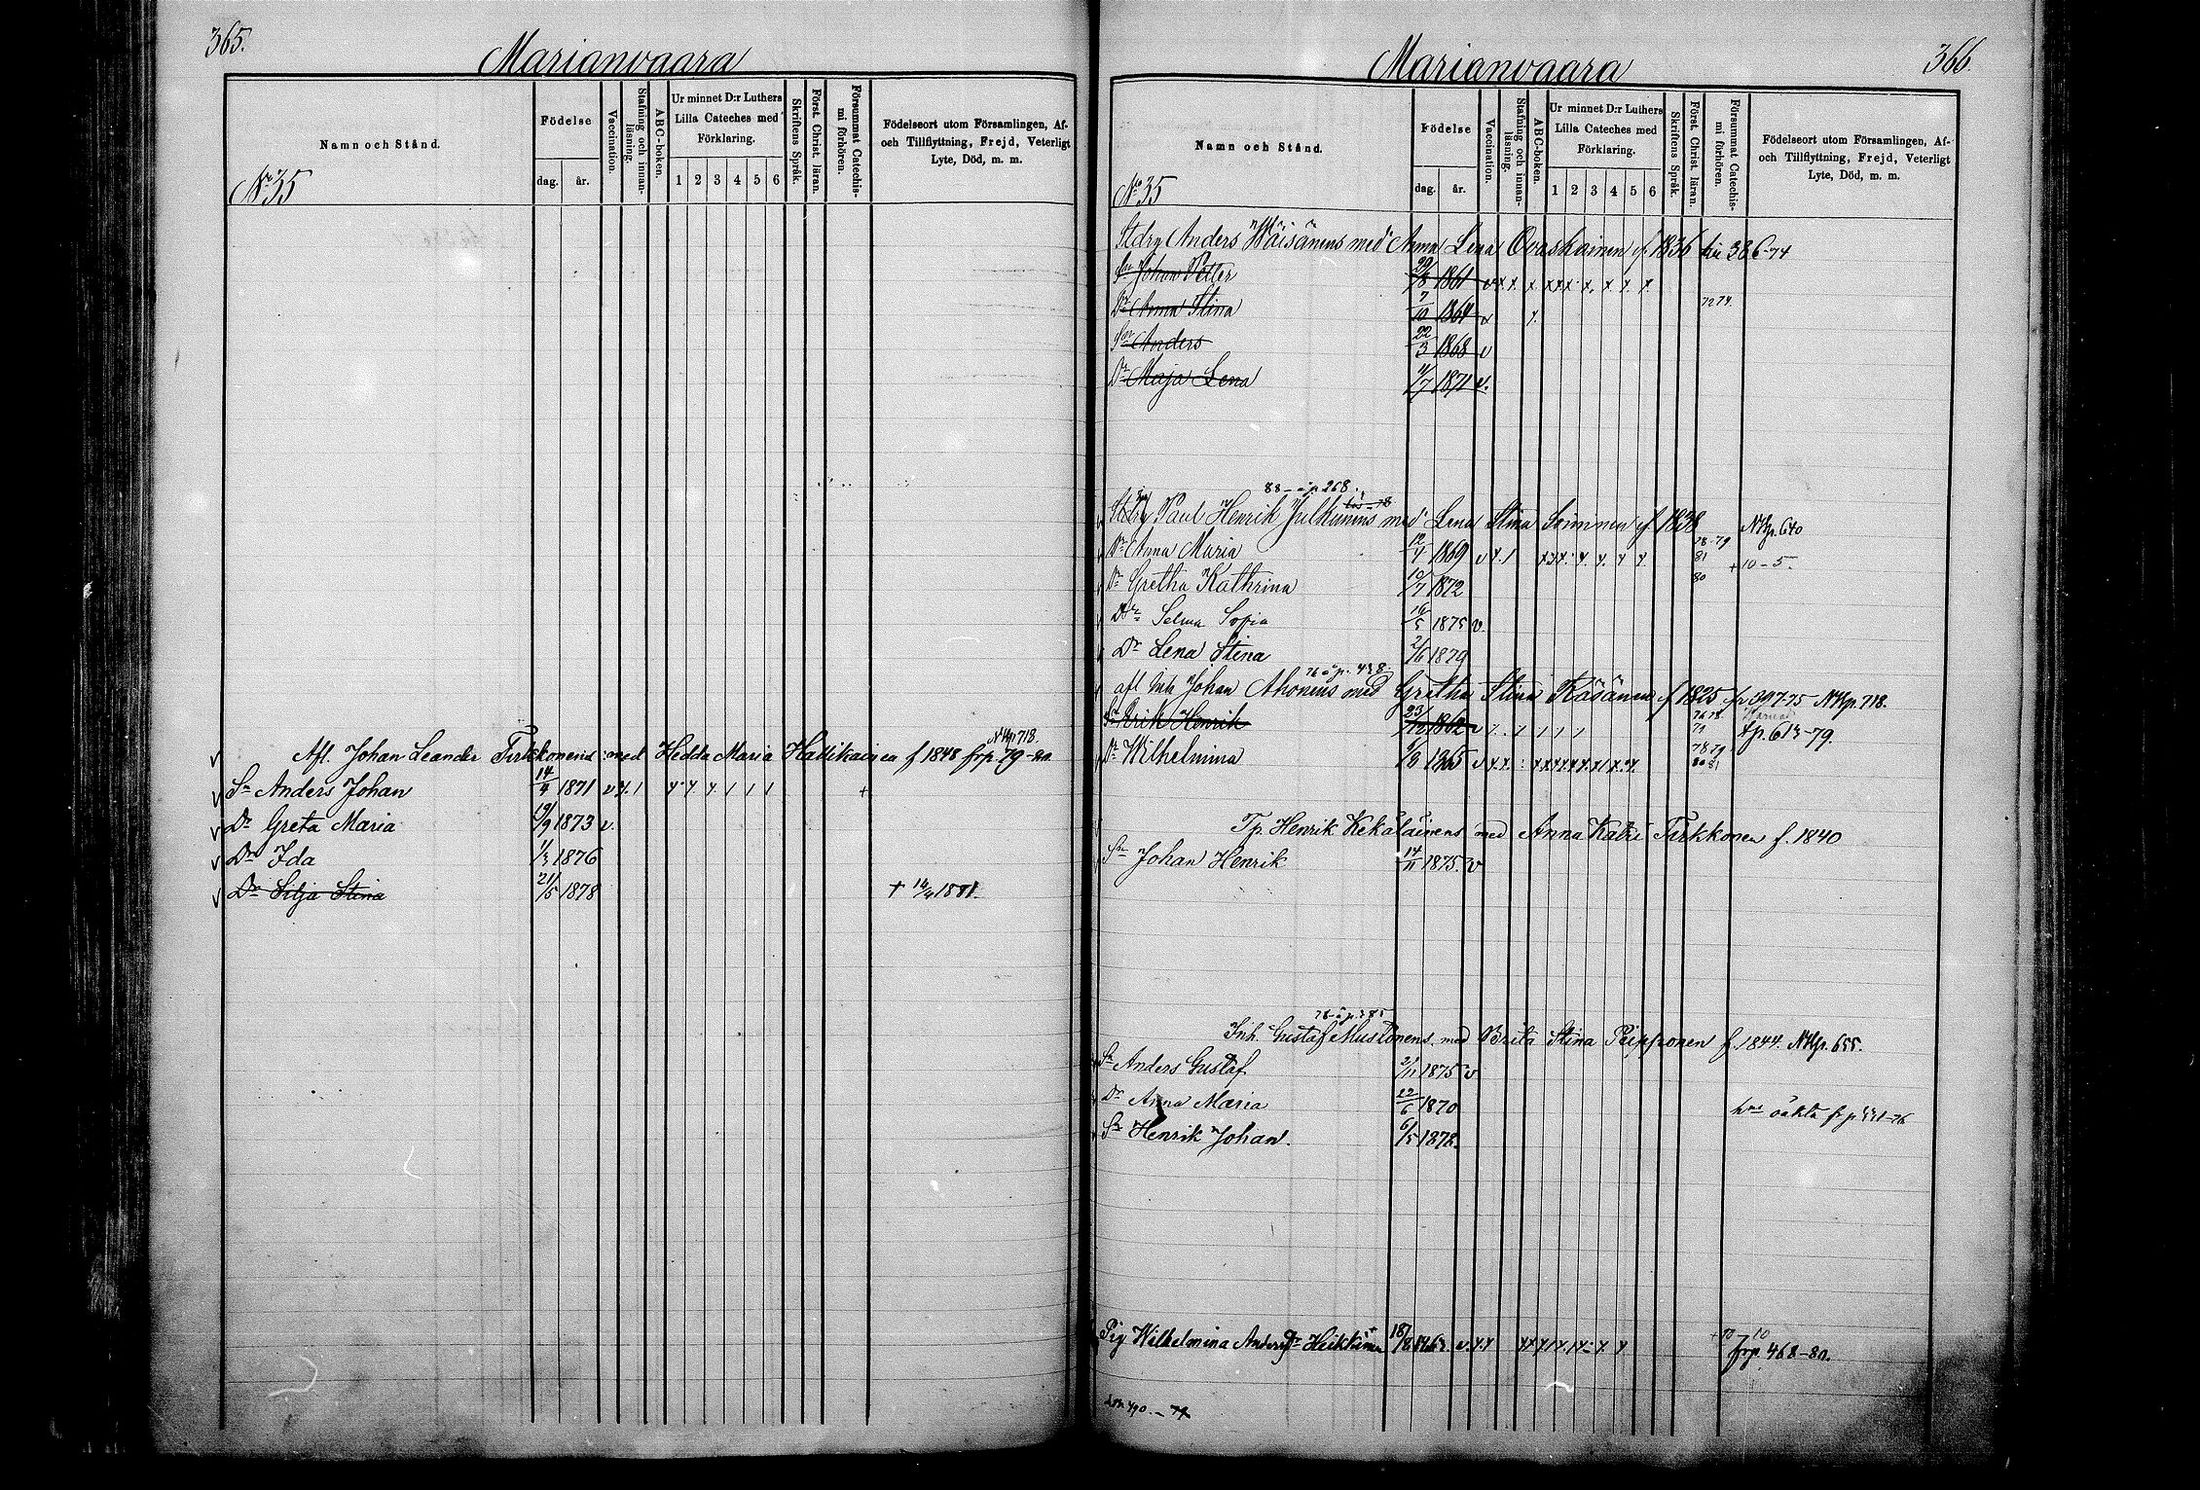 365.
Marianvaara
Namn och Stånd.
Födelse
dag.
år.
Vaccination.
Stafning och innan-läsning.
ABC-boken.
Ur minnet D:r Luthers
Lilla Cateches med
Förklaring.
1 2 3 4 5 6
Skriftens Språk.
Först. Christ. läran.
Försummat Catechis-mi förhören.
Födelseort utom Församlingen, Af-
och Tillflyttning, Frejd, Veterligt
Lyte, Död, m. m.
No 35
NKp 718
Afl. Johan Leander Tirkkonens med Hedda Maria Hallikainen f 1848 frp 79-80
Sn Anders Johan 14/4 1871 v
Dr Greta Maria 19/9 1873 v.
Dr Ida 1/3 1876
Dr Silja Stina 21/5 1878 + 1881.
366.
Marianvaara
Namn och Stånd.
Födelse
dag.
år.
Vaccination.
Stafning och innan-läsning.
ABC-boken.
Ur minnet D:r Luthers
Lilla Cateches med
Förklaring.
1 2 3 4 5 6
Skriftens Språk.
Först. Christ. läran.
Försummat Catechis-mi förhören.
Födelseort utom Församlingen, Af-
och Tillflyttning, Frejd, Veterligt
Lyte, Död, m. m.
No 35
Anders Wäisänens med Anna Lena Ovaskainen f 1836 386-74
Sn Johan Petter 29/8 1861
Dr Anna Stina 7/10 1864
Sn Anders 22/3 1868 v
Dr Maja Lena 11/7 1871 v.
88 - p 268.
Paul Henrik Julkunens med Lena Stina f 1838 NKp. 640
Dr Anna Maria 12/4 1869 v 78-79 81 + 10-5.
Dr Gretha Kathrina 10/7 1872 80
Dr Selma Sofia 16/5 1875 v.
Dr Lena Stina 2/6 1879
76 p. 438.
afl Inh Johan Ahonens med Gretha Stina Räsänen f 1825 fr p 397-75 NKp. 718.
Sn Erik Henrik 23/12 1862 v tp. 613-79.
Dr Wilhelmina 1865 v 78 79 80 81
Tp. Henrik Kekäläinens med Anna Kaisi Tirkkonen f. 1840
Sn Johan Henrik 14/11 1875. v
Inh. Gustaf Mustonens med Brita Stina Piipponen f 1844. NKp. 655.
Sn Anders Gustaf 2/11 1875 v
Dr Anna Maria 22/6 1870 oäkta fr p
Sn Henrik Johan. 6/5 1878.
Pig Wilhelmina Andersdr Heikkinen 18/8 v. frp 468-80.